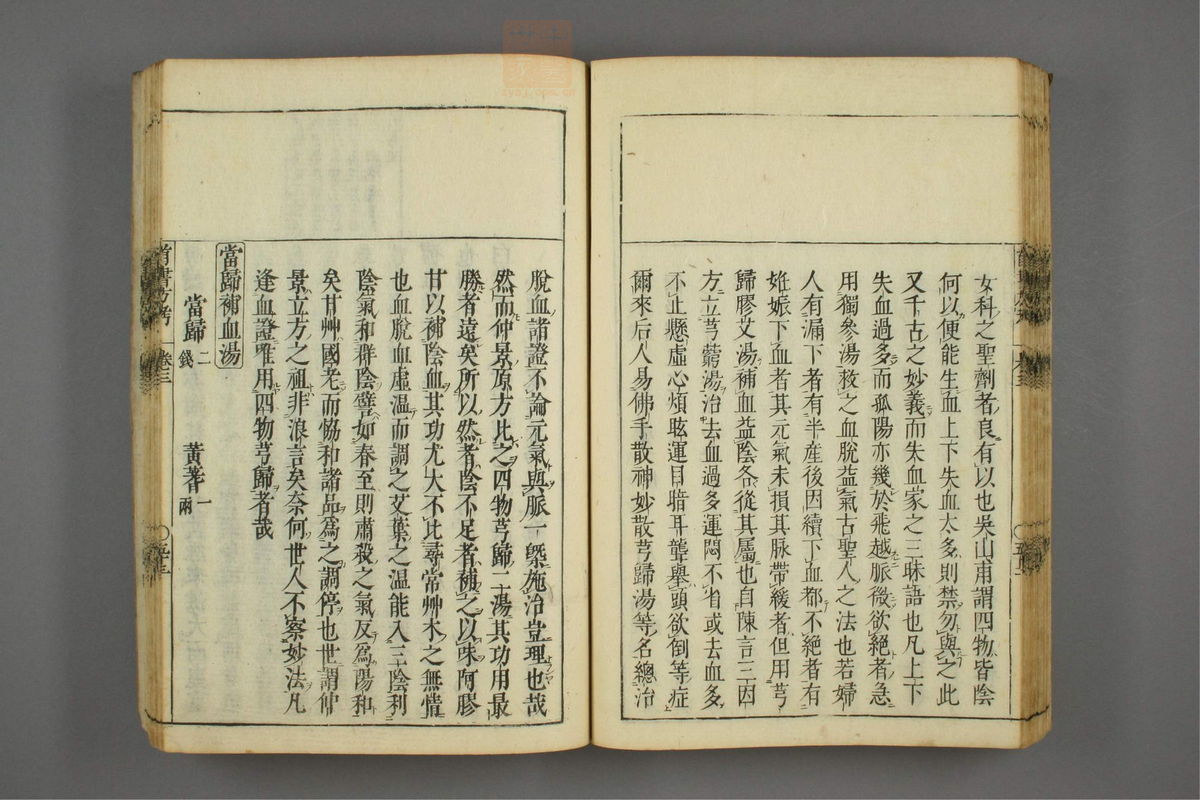 女科之聖劑者良有以也吳山甫謂四物皆陰
何以便能生血上下失血太多則禁勿與之此
又千古之妙義而失血家之三昧語也凡上下
失血過多而孤陽亦幾於飛越脈微欲絕者急
用獨參湯救之血脫益氣古聖人之法也若婦
人有漏下者有半産後因續下血都不絕者有
妊娠下血者其元氣未損其脉帶緩者但用芎
歸膠艾湯補血益陰各從其屬也自陳言三因
方立芎藭湯治去血過多運悶不省或去血多
不止懸虛心煩眩運目暗耳聾舉頭欲倒等症
爾來后人易佛手散神妙散芎歸湯等名總治
脫血諸證不論元氣與脈一槩施治豈理也哉
然而仲景原方比之四物芎歸二湯其功用最
勝者遠矣所以然者陰不足者補之以味阿膠
甘以補陰血其功尤大不比尋常艸木之無情
也血脫血虛温而調之艾葉之温能入三陰利
陰氣和群陰譬如春至則肅殺之氣反爲陽和
矣甘艸國老而恊和諸品爲之調停也世謂仲
景立方之祖非浪言矣奈何世人不察妙法凡
逢血證唯用四物芎歸者哉
當歸補血湯
當歸二錢 黃蓍一兩
首書方考 卷三